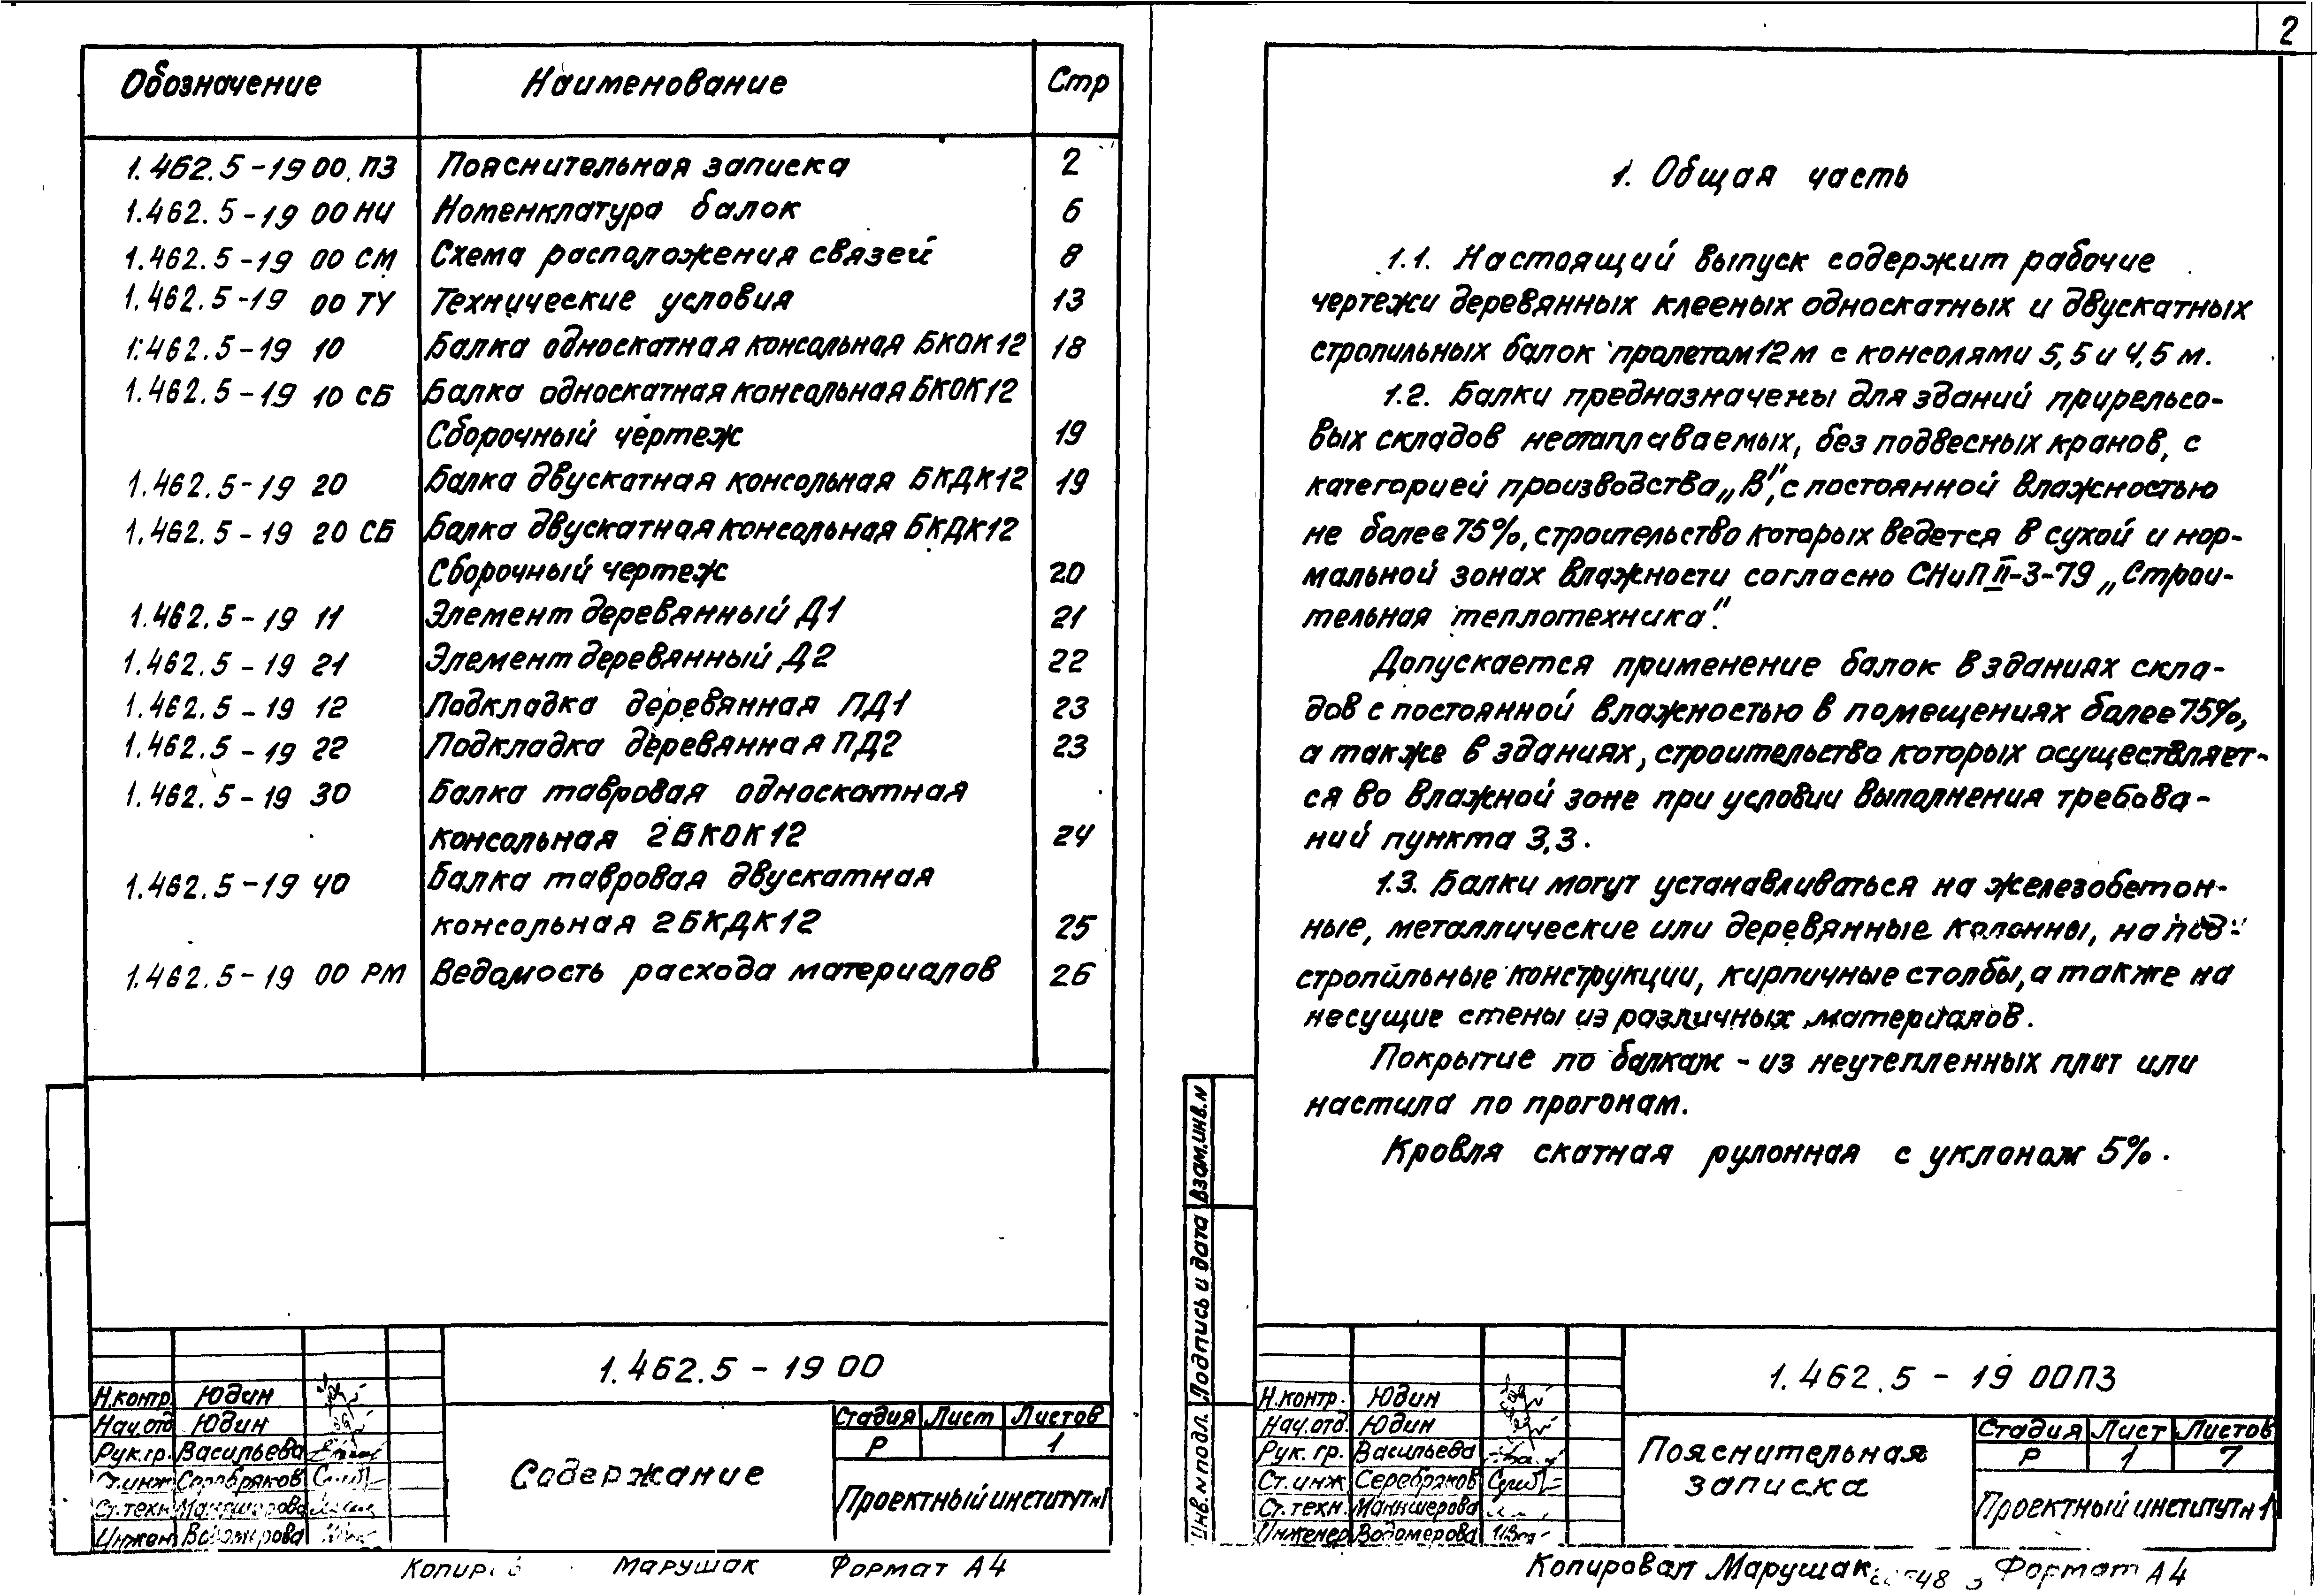 Обозначение Наименование Стр
1.462.5-19 00.ПЗ Пояснительная записка 2
1.462.5-19 00 НИ Номенклатура балок 6
1.462.5-19 00 СМ Схема расположения связей 8
1.462.5-19 00 ТУ Технические условия 13
1.462.5-19 10 Балка односкатная консольная БКОК12 18
1.462.5-19 10 СБ Балка односкатная консольная БКОК12
Сборочный чертеж 19
1.462.5-19 20 Балка двускатная консольная БКДК12 19
1.462.5-19 20 СБ Балка двускатная консольная БКДК12
Сборочный чертеж 20
1.462.5-19 11 Элемент деревянный Д1 21
1.462.5-19 21 Элемент деревянный Д2 22
1.462.5-19 12 Подкладка деревянная ПД1 23
1.462.5-19 22 Подкладка деревянная ПД2 23
1.462.5-19 30 Балка тавровая односкатная
консольная 2БКОК12 24
1.462.5-19 40 Балка тавровая двускатная
консольная 2БКДК12 25
1.462.5-19 00 РМ Ведомость расхода материалов 26
1.462.5-19 00
Н.контр. Юдин
Нач.отд Юдин
Рук.гр. Васильева
Ст.инж Серебряков
Ст.техн. Манншерова
Инжен Водомерова
Содержание
Стадия Лист Листов
Р 1
Проектный институт №1
Марушак Формат А4
2
1. Общая часть
1.1. Настоящий выпуск содержит рабочие
чертежи деревянных клееных односкатных и двускатных
стропильных балок пролетом 12 м с консолями 5,5 и 4,5 м.
1.2. Балки предназначены для зданий прирельсо-
вых складов неотапливаемых, без подвесных кранов, с
категорией производства „В", с постоянной влажностью
не более 75%, строительство которых ведется в сухой и нор-
мальной зонах влажности согласно СНиП II-3-79 „Строи-
тельная теплотехника".
Допускается применение балок в зданиях скла-
дов с постоянной влажностью в помещениях более 75%,
а также в зданиях, строительство которых осуществляет-
ся во влажной зоне при условии выполнения требова-
ний пункта 3.3.
1.3. Балки могут устанавливаться на железобетон-
ные, металлические или деревянные колонны, на под-
стропильные конструкции, кирпичные столбы, а также на
несущие стены из различных материалов.
Покрытие по балкам - из неутепленных плит или
настила по прогонам.
Кровля скатная рулонная с уклоном 5%.
Взам.инв.№
Подпись и дата
Инв.№ подл.
1.462.5-19 00ПЗ
Н.контр. Юдин
Нач.отд. Юдин
Рук.гр. Васильева
Ст.инж Серебряков
Ст.техн. Манншерова
Инженер Водомерова
Пояснительная
записка
Стадия Лист Листов
Р 1 7
Проектный институт №1
Копировал Марушак Формат А4